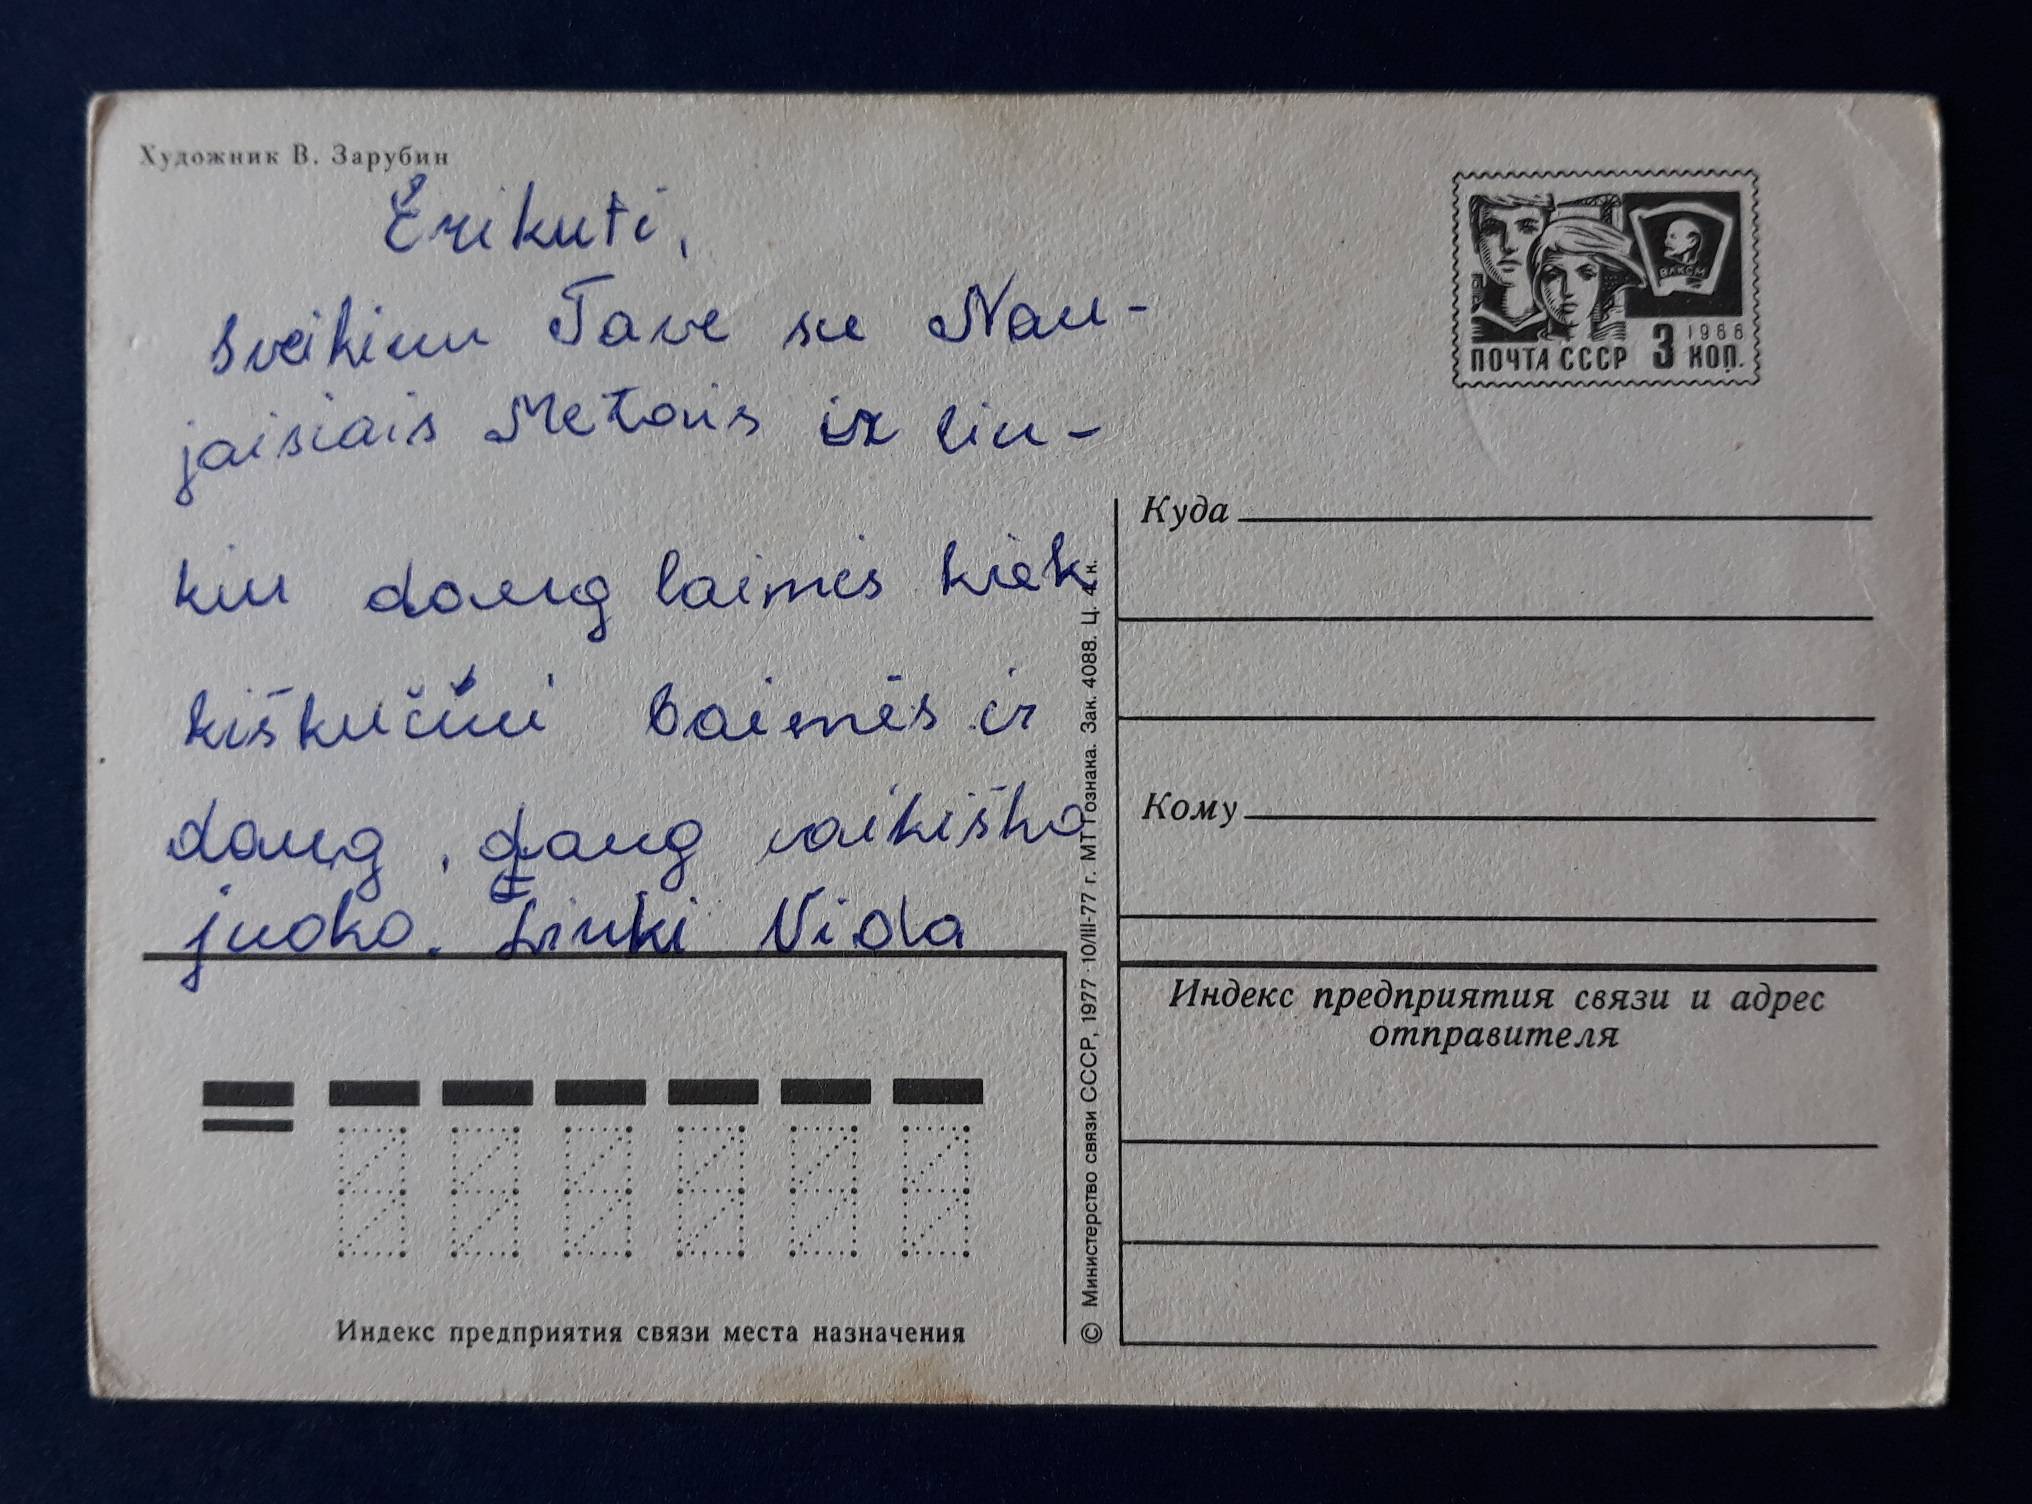 Художник В. Зарубин
Erikuti,
sveikinu Tave su Nau-
jaisiais Metais ir lin-
kiu daug laimės kiek
kiškučiui baimės ir
daug, daug vaikiško
juoko. Linki Vida
ВЛКСМ
1966
ПОЧТА СССР 3 КОП.
Куда
Кому
Индекс предприятия связи и адрес
отправителя
© Министерство связи СССР, 1977 · 10/III-77 г. МТ Гознака. Зак. 4088. Ц. 4 к.
Индекс предприятия связи места назначения